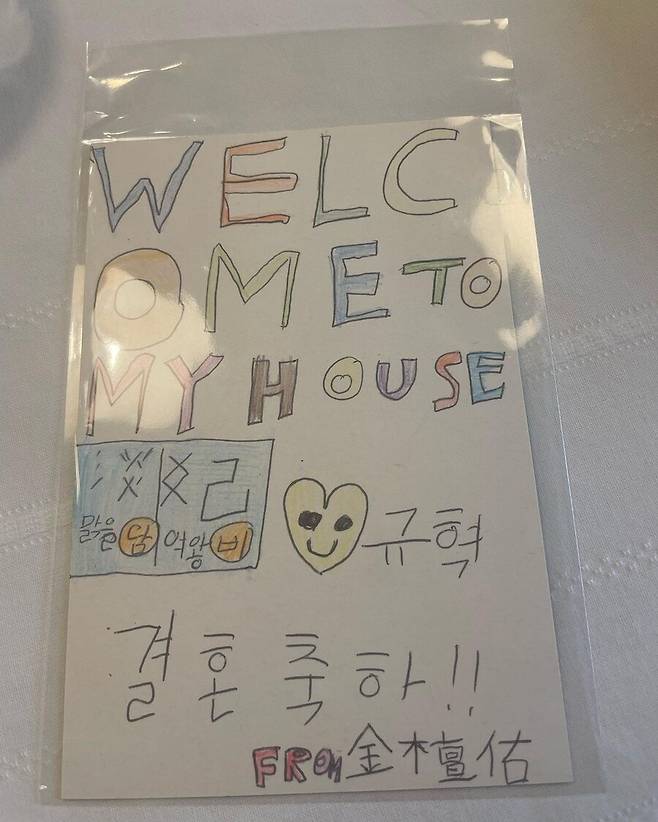 WELC
OME TO
MY HOUSE
淡 妃
맑을 담 여왕 비 규혁
결혼 축하!!
FROM 金檀佑